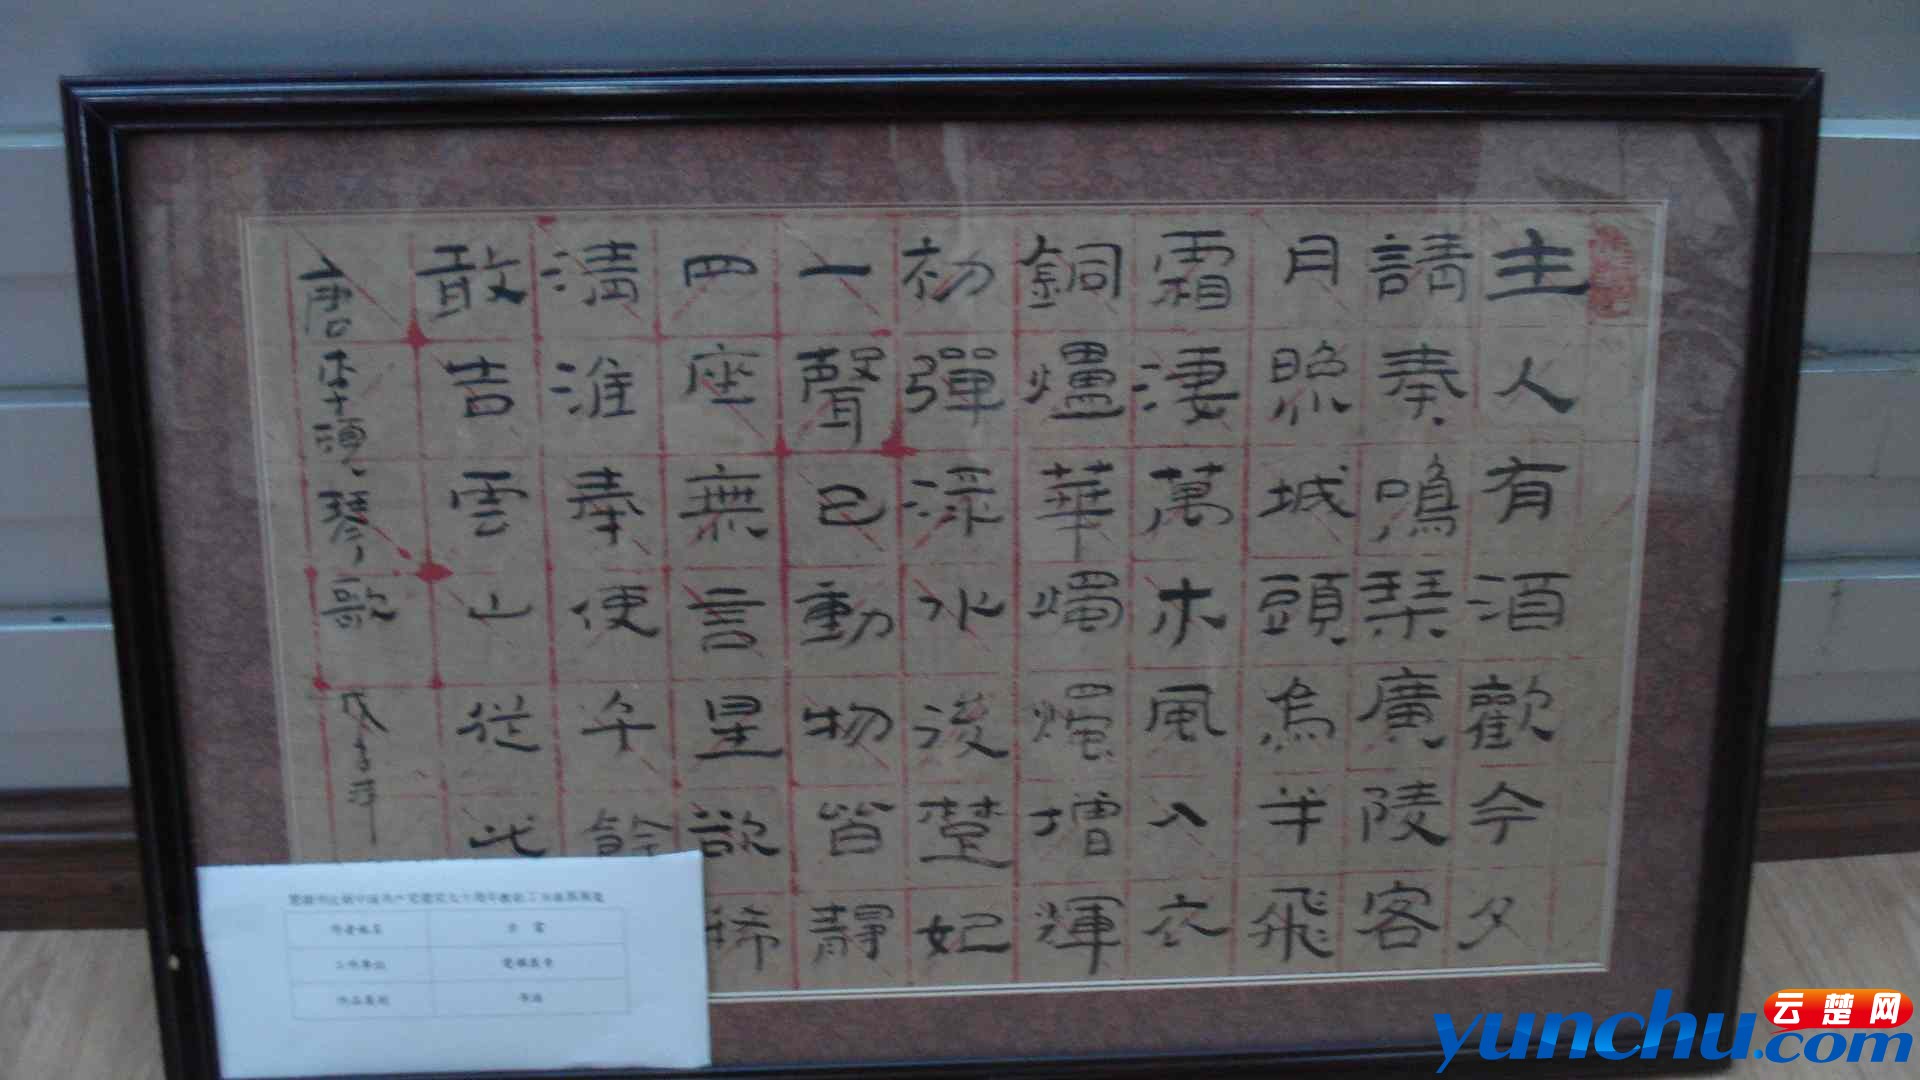 主人有酒歡今夕
請奏鳴琹廣陵客
月照城頭烏半飛
霜淒萬木風入衣
銅爐華燭燭增輝
初彈淥水後楚妃
一聲已動物皆靜
四座無言星欲稀
清淮奉使千餘
敢告雲山從此
唐李頎琴歌
作者姓名
工作单位
作品类别 书法
云楚网
yunchu.com